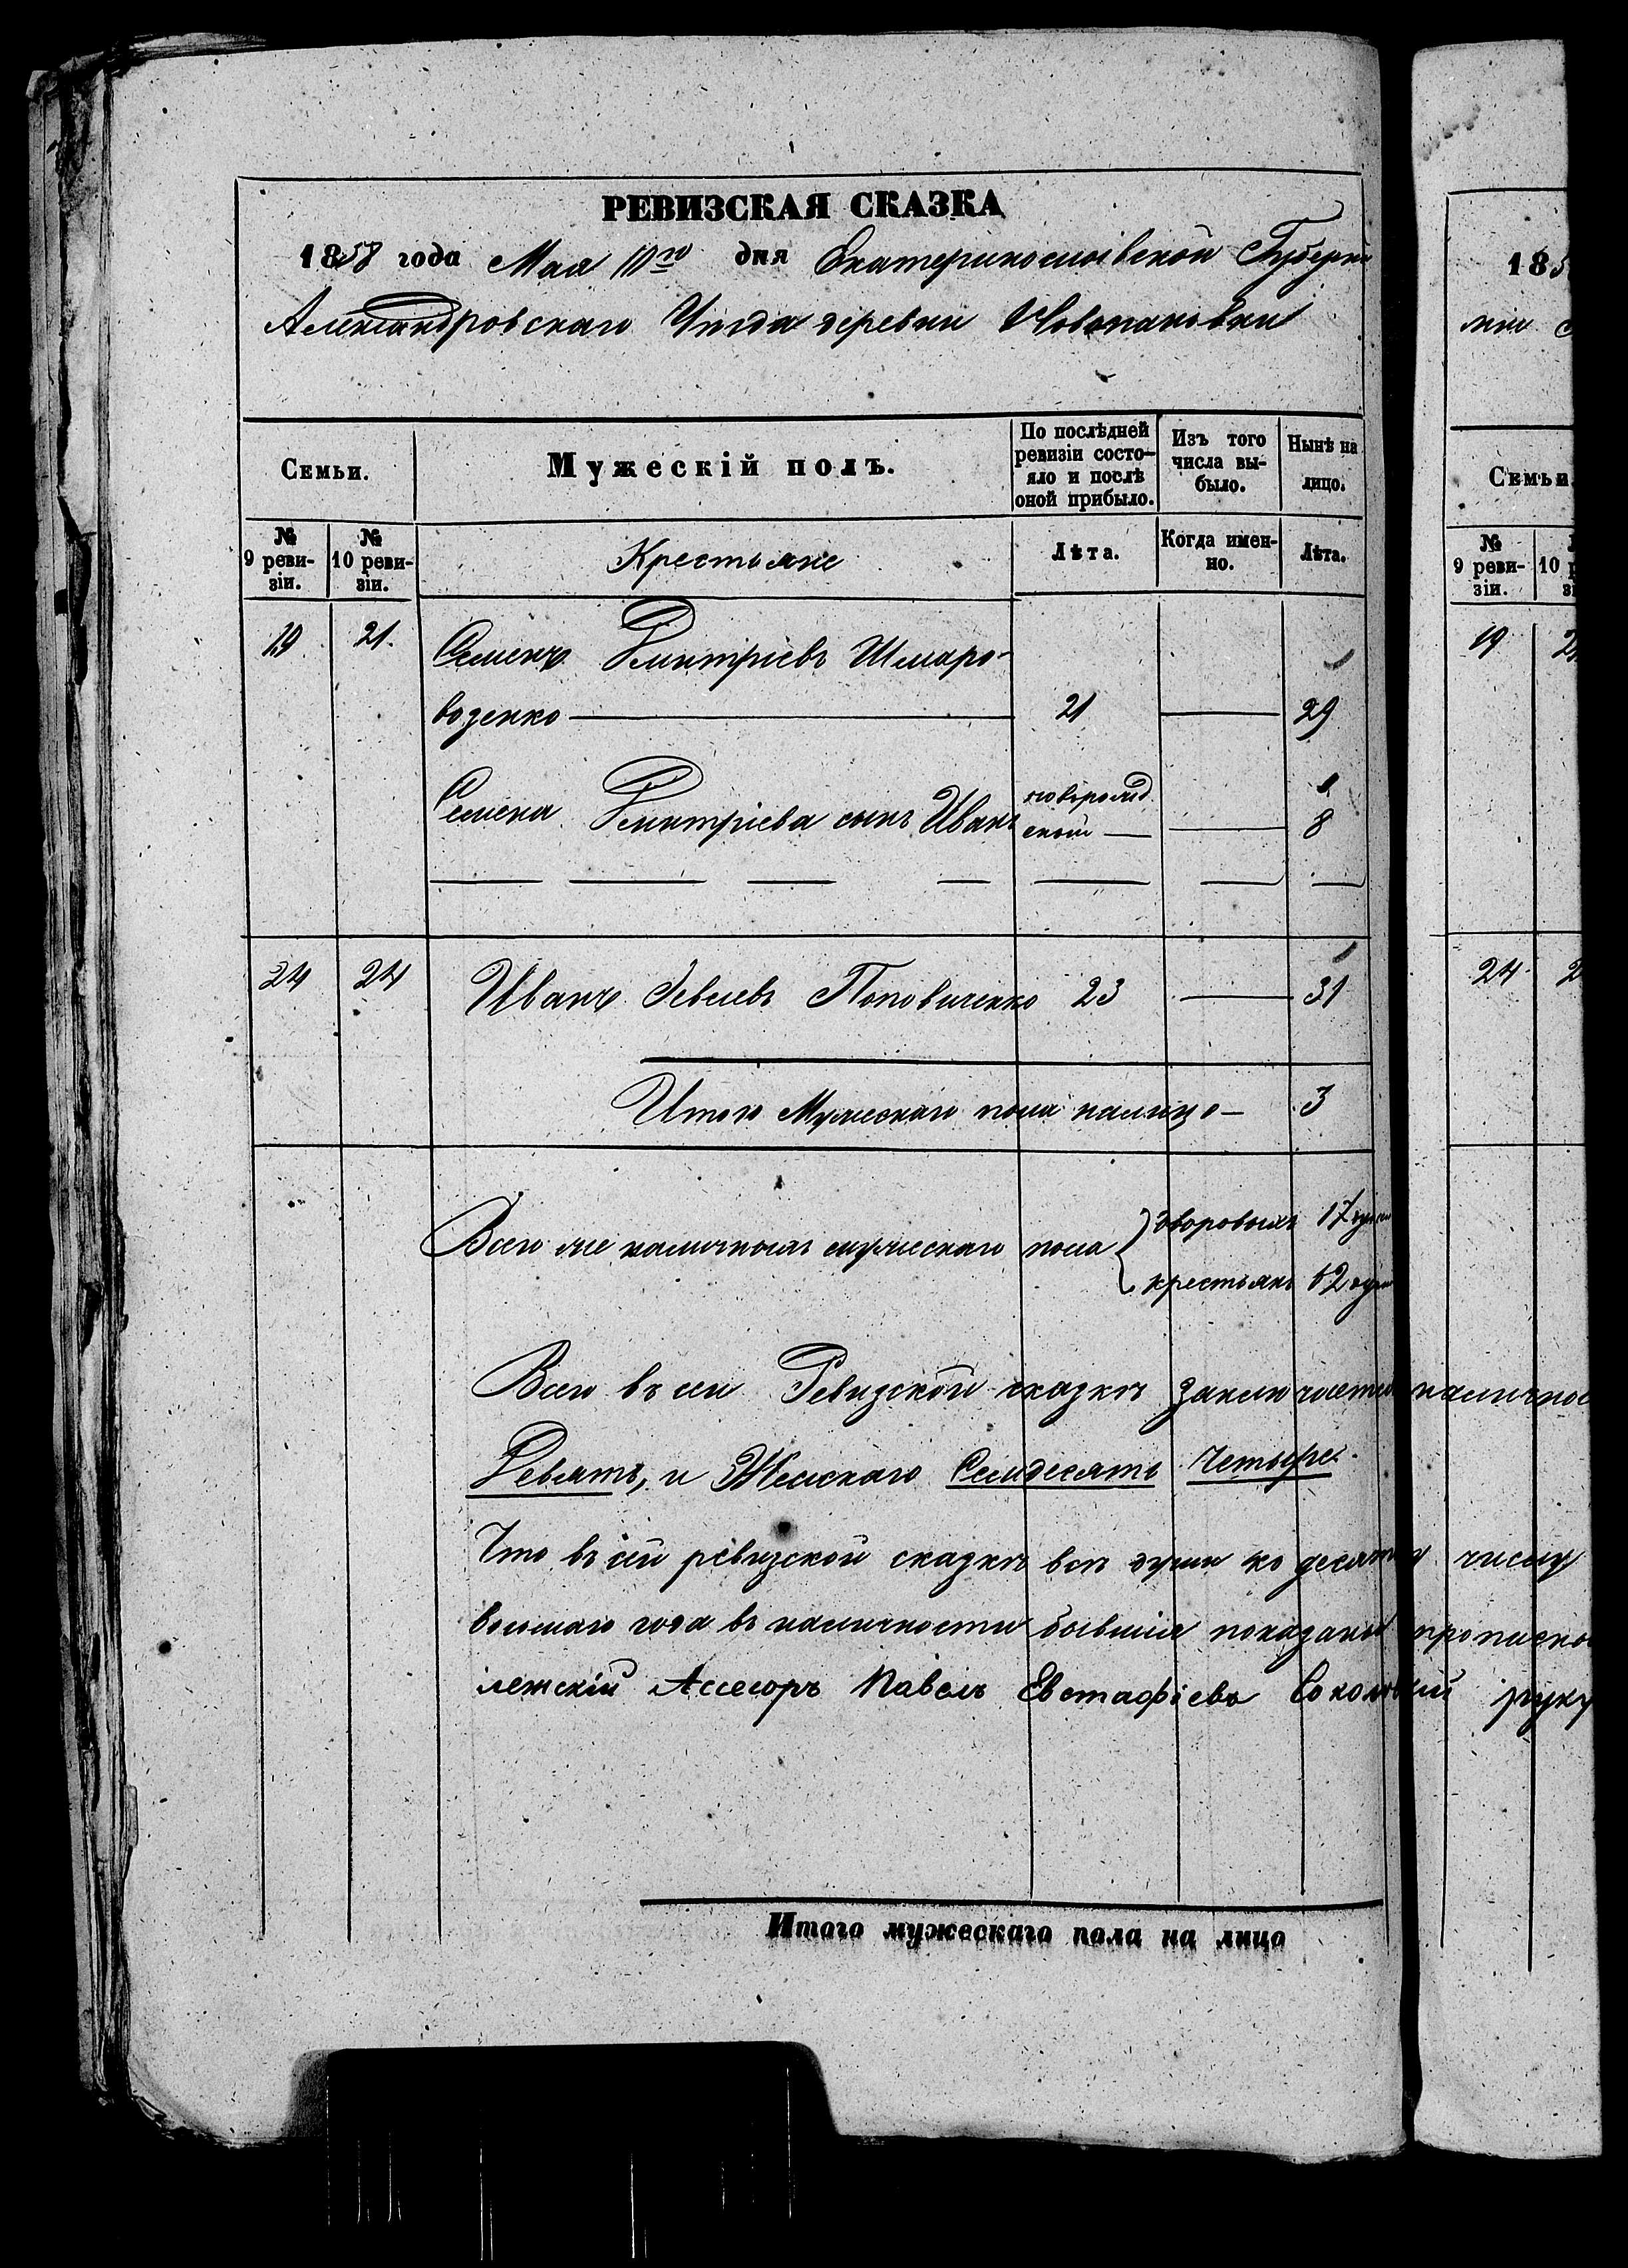 РЕВИЗСКАЯ СКАЗКА
1858 года Мая 10го дня Екатеринославской Губерні
Александровскаго Уѣзда деревни Новопановки
Семьи.
Мужескій полъ.
По послѣдней ревизіи состо-
яло и послѣ
оной прибыло.
Изъ того
числа вы-
было.
Нынѣ на
лицо.
№
9 реви-
зіи.
№
10 реви-
зіи.
Крестьяне
Лѣта.
Когда имен-
но.
Лѣта.
19 21. Семенъ Дмитріевъ Шмаро-
воденко 21 29
Семена Дмитріева сынъ Иванъ новорожд
еный 8
24 24 Иванъ Попович­енко 23 31
Итого Мужескаго пола налицо 3
Всего же наличныхъ мужескаго пола
дворовыхъ 17 душъ
крестьянъ 52 души
Всего въ сей Ревизской сказкѣ заключается наличнос
Девять, и Женскаго Семдесятъ Четыре.
Что въ сей ревизской сказкѣ всѣ души по десятому числу
восьмаго года въ наличности бывшія показаны прописно
лежскій Ассесоръ Павелъ Евстафіевъ руку
Итого мужескаго пола на лицо
185
Семьи
№
9 реви-
зіи.
10 р
19
24